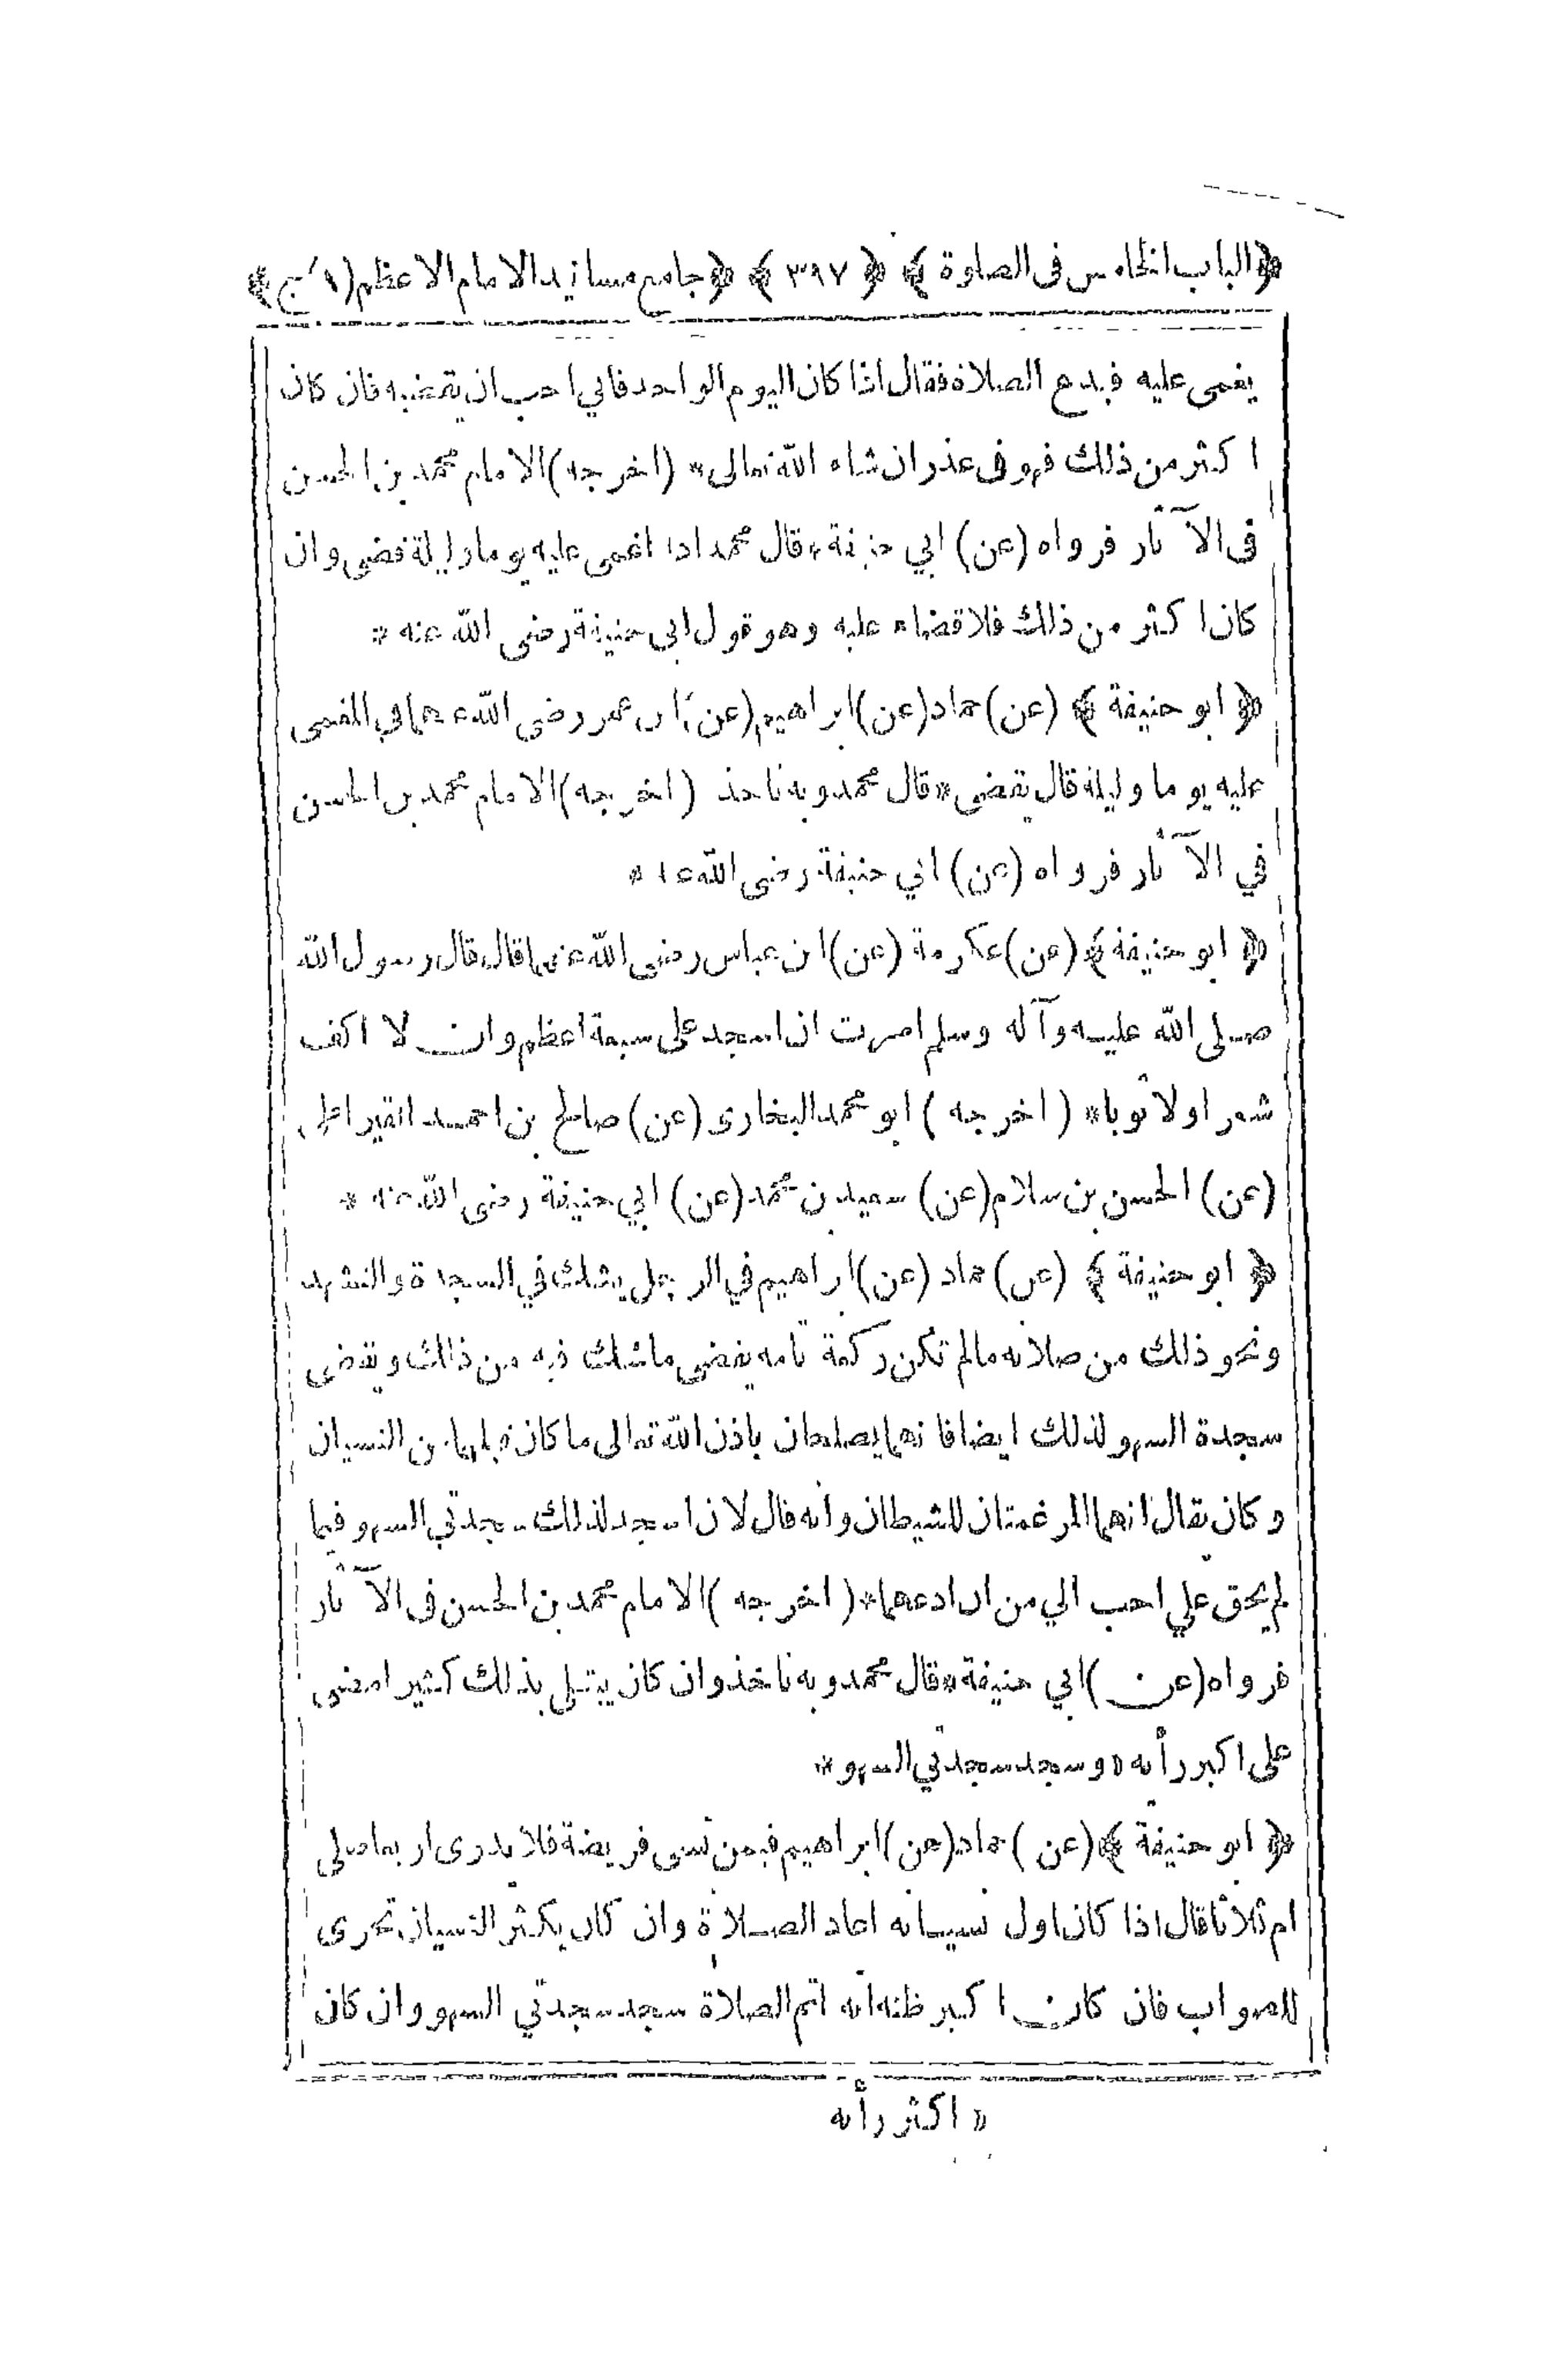 ﴿الباب الخامس فى الصلوة﴾ ﴿٣٩٧﴾ ﴿جامع مسانيد الامام الاعظم (١) ج﴾
يغمى عليه فيدع الصلاة فقال اذا كان اليوم الواحد فاني احب ان يقضيه فان كان
ا كثر من ذلك فهو فى عذر ان شاء الله تعالى * (اخرجه) الامام محمد بن الحسن
فى الآثار فرواه (عن) ابي حنيفة * قال محمد اذا اغمى عليه يوما وليلة قضى وان
كان ا كثر من ذلك فلا قضاء عليه وهو قول ابى حنيفة رضى الله عنه *
﴿ابو حنيفة﴾ (عن) حماد (عن) ابراهيم (عن) ابن عمر رضى الله عنهما في المغمى
عليه يوما وليلة قال يقضى * قال محمد وبه ناخذ (اخرجه) الامام محمد بن الحسن
في الآثار فرواه (عن) ابي حنيفة رضى الله عنه *
﴿ابو حنيفة﴾ (عن) عكرمة (عن) ابن عباس رضى الله عنهما قال قال رسول الله
صلى الله عليه وآله وسلم امرت ان اسجد على سبعة اعظم وان لا اكف
شعرا ولا ثوبا * (اخرجه) ابو محمد البخارى (عن) صالح بن احمد القيراطي
(عن) الحسن بن سلام (عن) سعيد بن محمد (عن) ابي حنيفة رضى الله عنه *
﴿ابو حنيفة﴾ (عن) حماد (عن) ابراهيم في الرجل يشك في السجدة والتشهد
ونحو ذلك من صلاته مالم تكن ركعة تامه يقضى ماشك فيه من ذلك ويقضى
سجدة السهو لذلك ايضا فانهما يصلحان باذن الله تعالى ما كان قبلهما من النسيان
وكان يقال انهما المرغمتان للشيطان وانه قال لان اسجد لذلك سجدتي السهو فيما
لم يحق علي احب الي من ان ادعهما * (اخرجه) الامام محمد بن الحسن فى الآثار
فرواه (عن) ابي حنيفة * قال محمد وبه ناخذ وان كان يبتلى بذلك كثيرا مضى
على اكبر رأيه * وسجد سجدتي السهو *
﴿ابو حنيفة﴾ (عن) حماد (عن) ابراهيم فيمن نسى فريضة فلا يدرى اربعا صلى
ام ثلاثا قال اذا كان اول نسيانه اعاد الصلاة وان كان يكثر النسيان تحرى
للصواب فان كان ا كبر ظنه انه اتم الصلاة سجد سجدتي السهو وان كان
* اكثر رأيه